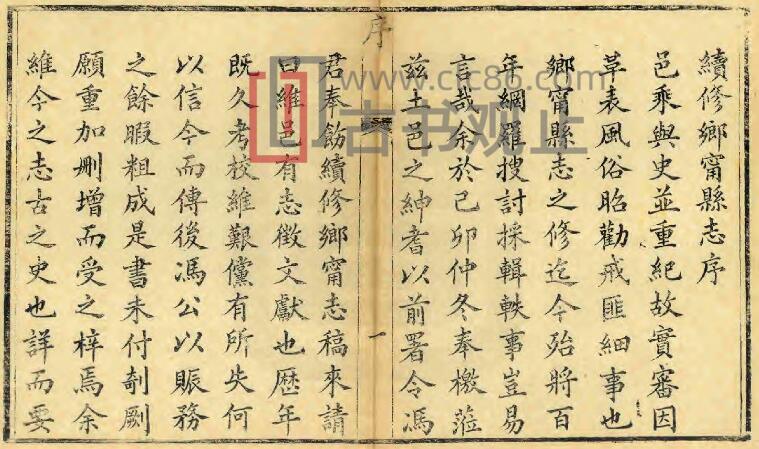 續修鄉甯縣志序
邑乘與史並重紀故實審因
革表風俗昭勸戒匪細事也
鄉甯縣志之修迄今殆將百
年網羅搜討採輯軼事豈易
言哉余於己卯仲冬奉檄蒞
兹土邑之紳耆以前署令馮
序
一
君奉飭續修鄉甯志稿來請
曰維邑有志徵文獻也歷年
既久考校維艱儻有所失何
以信今而傳後馮公以賑務
之餘暇粗成是書未付剞劂
願重加刪增而受之梓焉余
維今之志古之史也詳而要
www.cfc86.com
古书观止